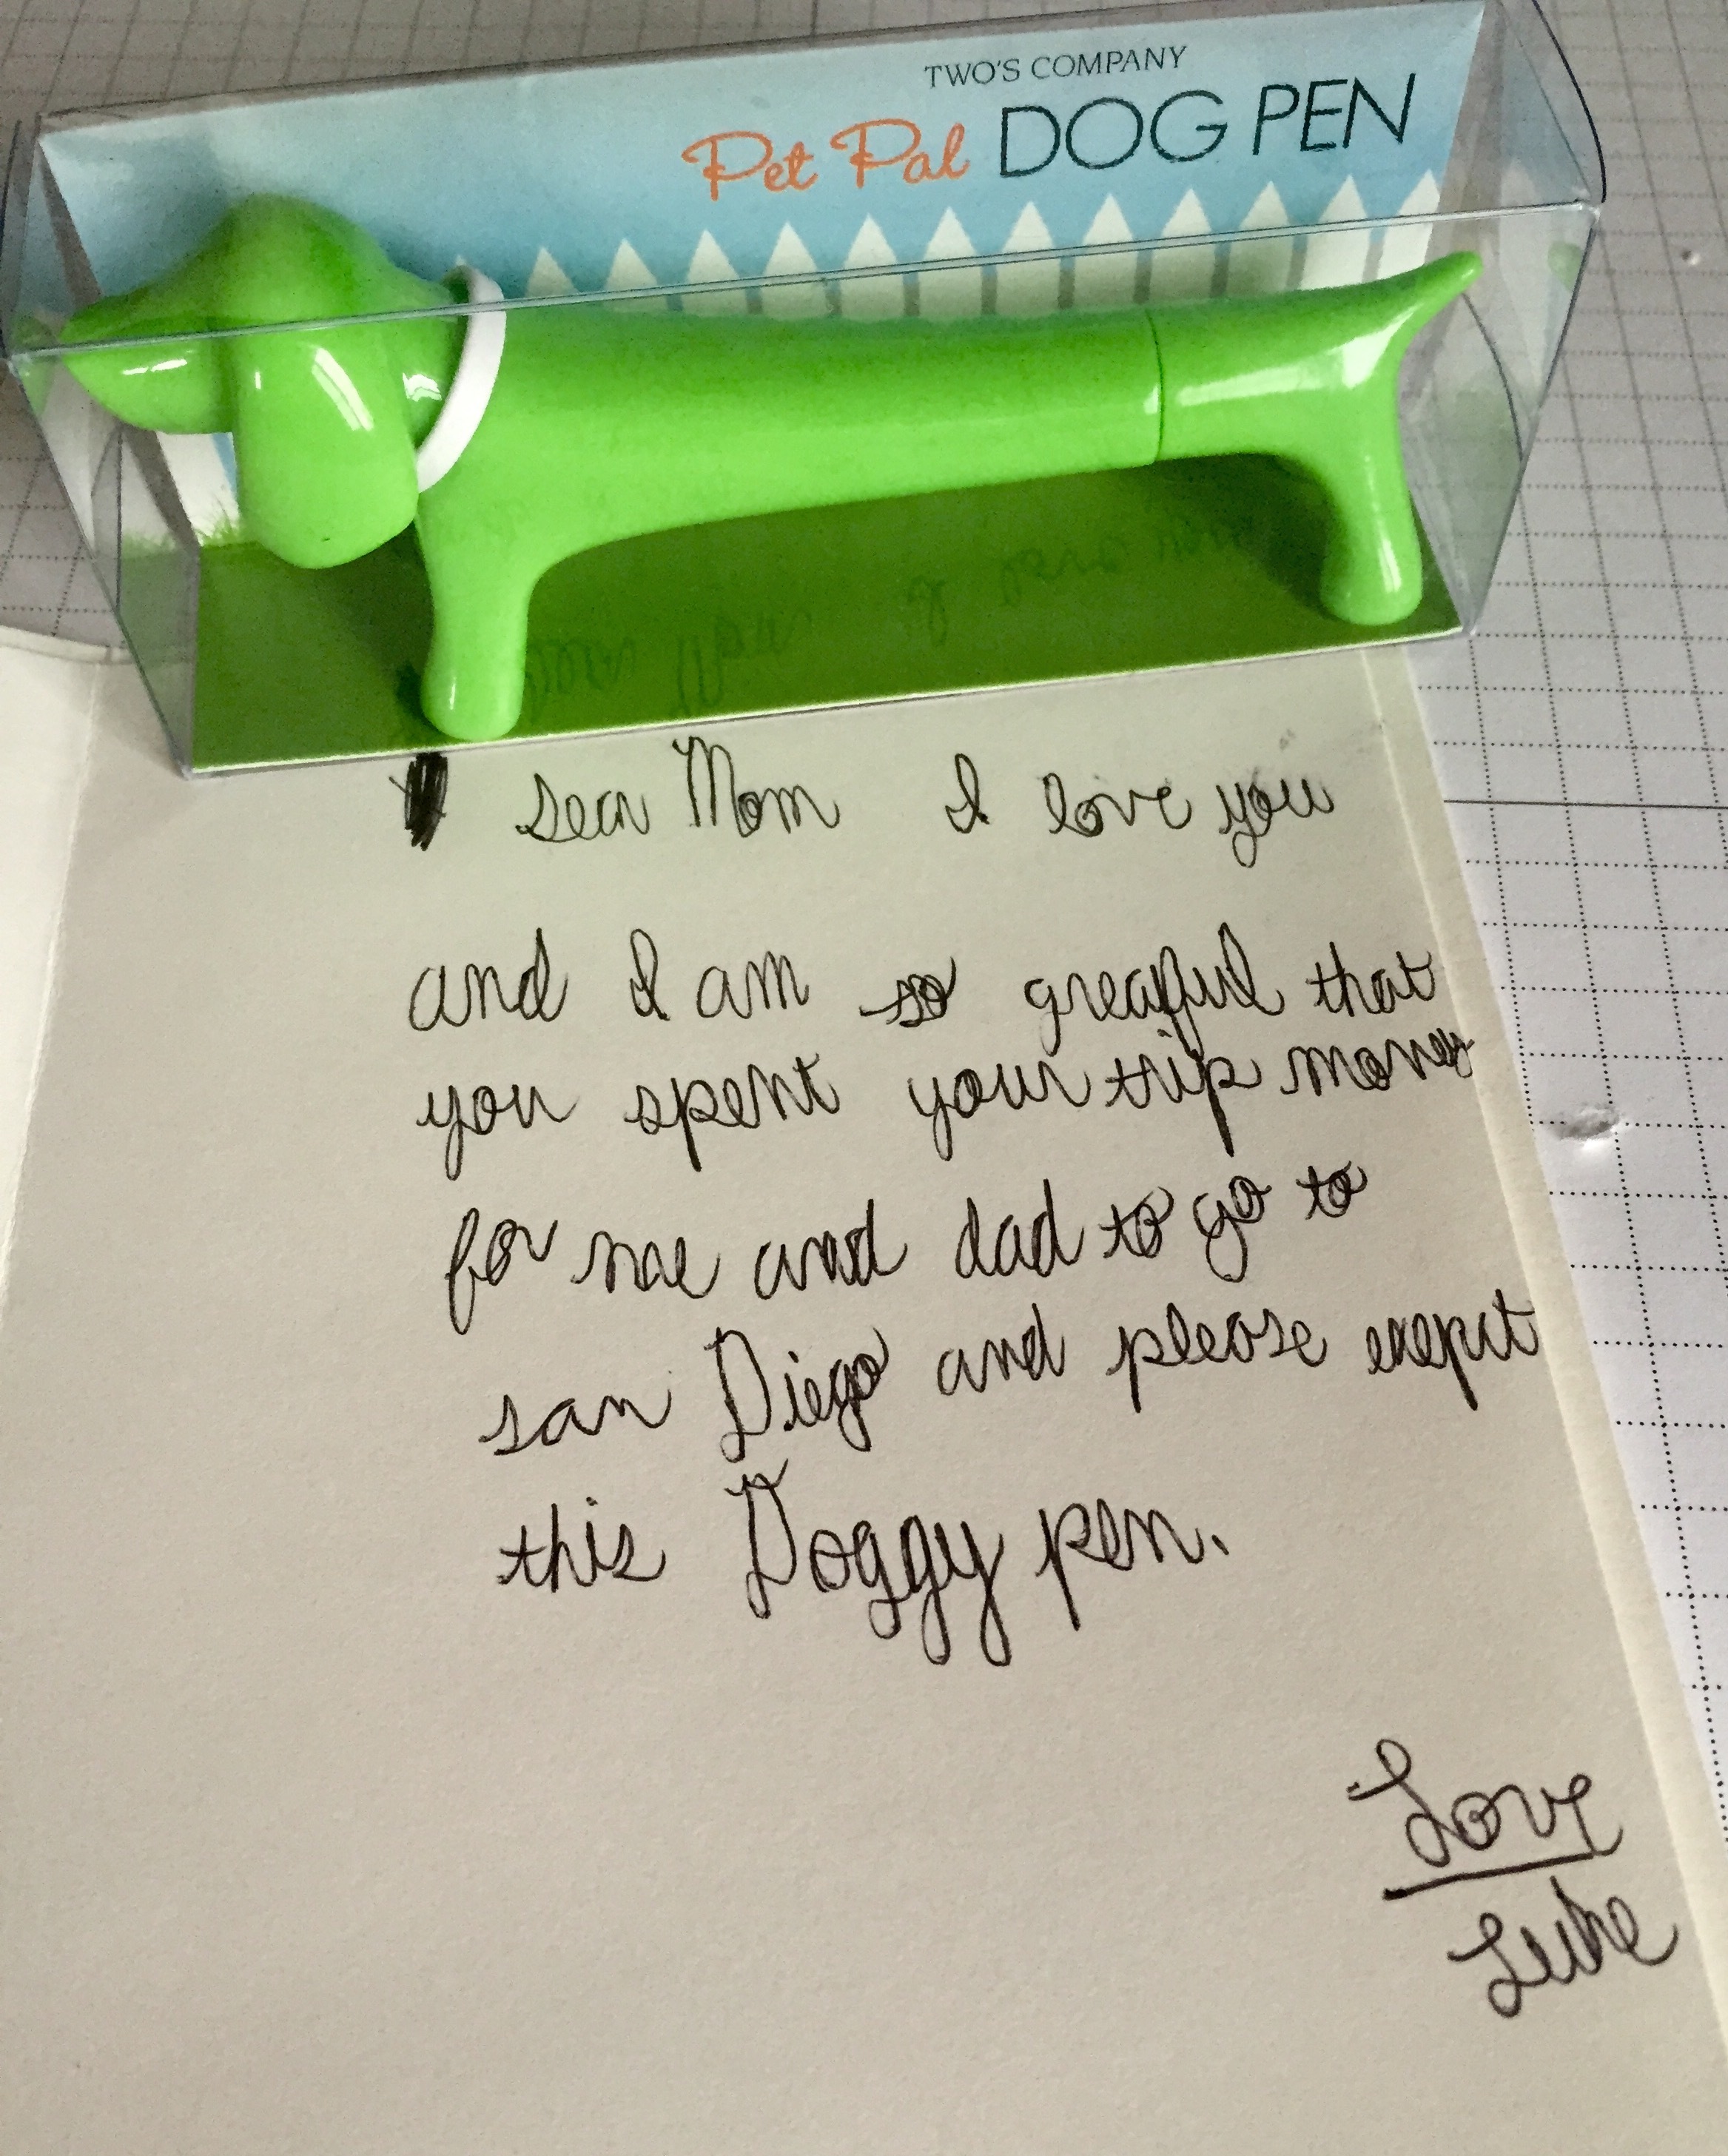 TWO'S COMPANY
Pet Pal DOG PEN
Dear Mom I love you
and I am so greatful that
you spent your trip money
for me and dad to go to
san Diego and please exepct
this Doggy pen.
Love
Luke